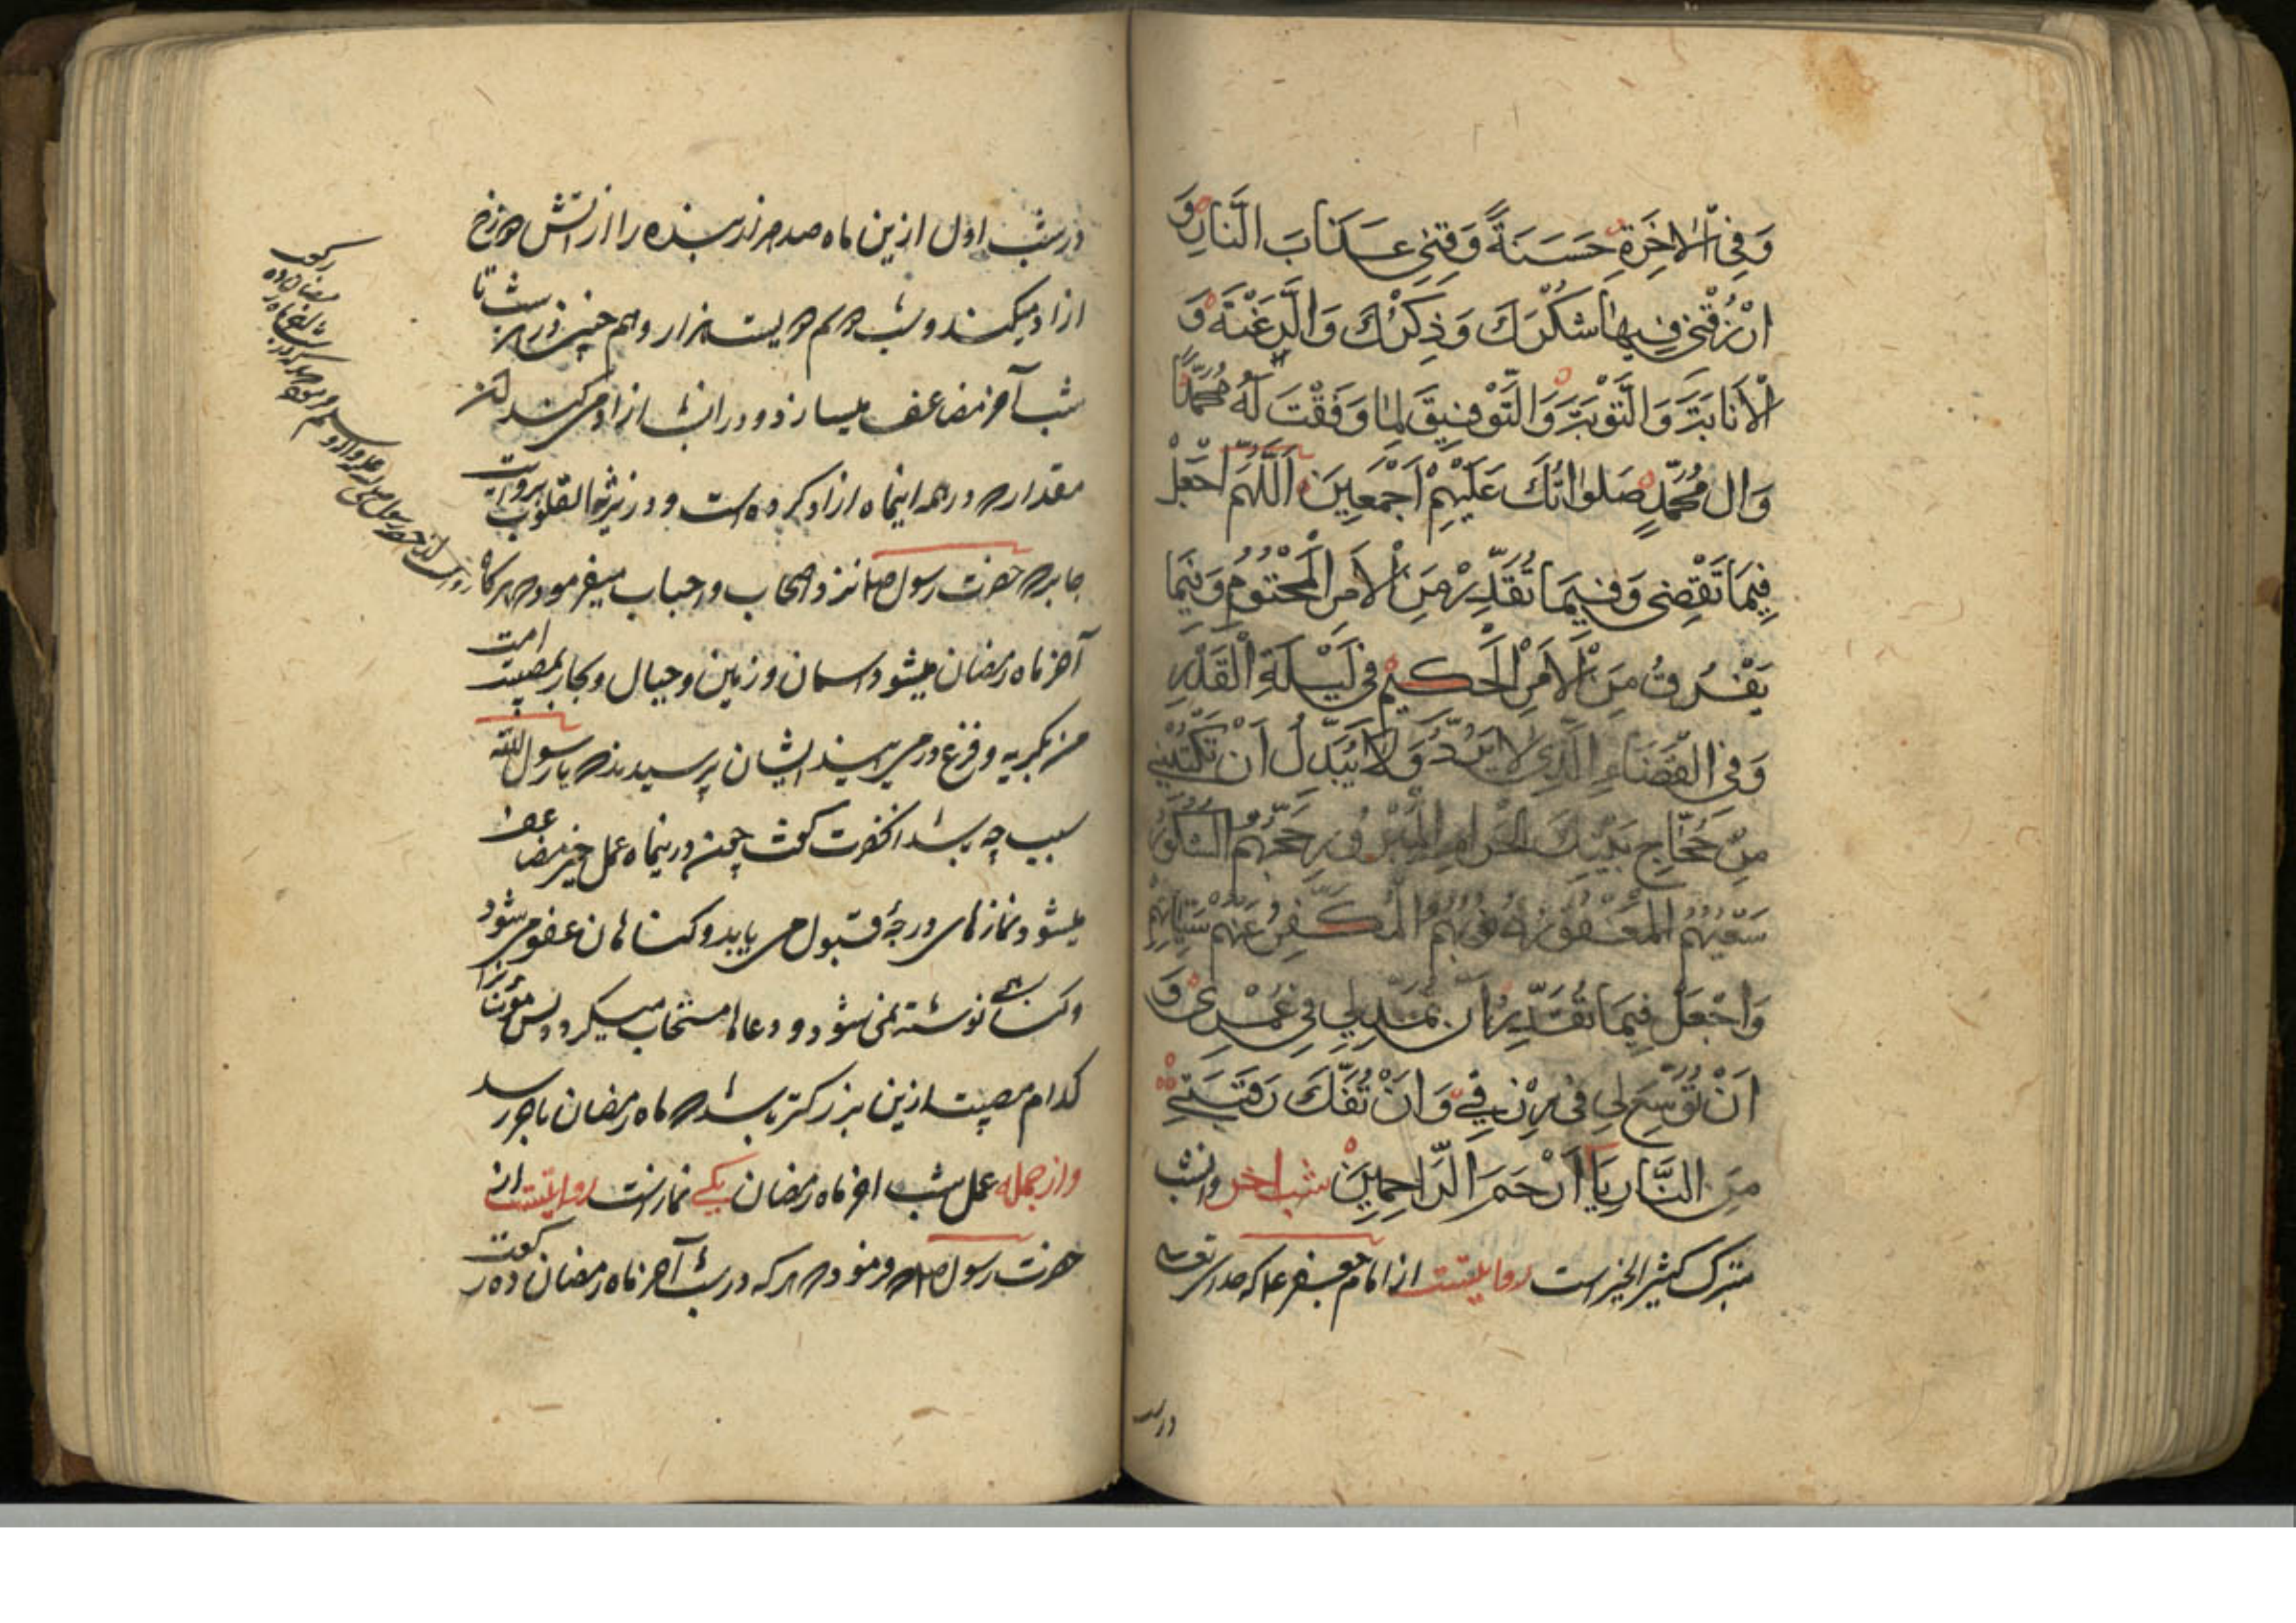 وَفِي الْاٰخِرَةِ حَسَنَةً وَقِنِي عَذَابَ النَّارِ وَ
ارْزُقْنِي فِيهَا شُكْرَكَ وَذِكْرَكَ وَالرَّغْبَةَ وَ
الْاَنَابَةَ وَالتَّوْبَةَ وَالتَّوْفِيقَ لِمَا وَفَقْتَ لَهُ مُحَمَّدًا
وَال مُحَمَّدٍ صَلَوَاتُكَ عَلَيْهِمْ اَجْمَعِينَ اَللّٰهُمَّ اجْعَلْ
فِيمَا تَقْضِي وَفِيمَا تُقَدِّرُ مِنَ الْاَمْرِ الْمَحْتُومِ وَفِيمَا
يَفْرُقُ مِنَ الْاَمْرِ الْحَكِيمِ فِي لَيْلَةِ الْقَدْرِ
وَفِي الْقَضَاءِ الَّذِي لَا يُرَدُّ وَلَا يُبَدَّلُ اَنْ تَكْتُبَنِي
مِنْ حُجَّاجِ بَيْتِكَ الْحَرَامِ الْمَبْرُورِ حَجُّهُمُ الْمَشْكُورُ
سَعْيُهُمُ الْمَغْفُورُ ذُنُوبُهُمُ الْمُكَفَّرُ عَنْهُمْ سَيِّاٰتُهُمْ
وَاجْعَلْ فِيمَا تُقَدِّرُ اَنْ تَمُدَّ لِي فِي عُمْرِي وَ
اَنْ تُوَسِّعَ لِي فِي رِزْقِي وَاَنْ تَفُكَّ رَقَبَتِي
مِنَ النَّارِ يَا اَرْحَمَ الرَّاحِمِينَ شب اخر وانشب
متبرک کثیر الخیر است روایتست از امام جعفر ع که خدای تعالی
در شب
در شب اول ازین ماه صد هزار بنده را از اتش دوزخ
ازاد میکند و شب دوم دویست هزار و هم چنین در هر شب تا
شب آخر مضاعف میسازد و در انشب ازاد می کند از
مقدار که در همه اینماه ازاد کرده است و در زبرة القلوب بروایت
جابر که حضرت رسول صلم نزد اصحاب و احباب میفرمود که هرگاه
آخر ماه رمضان میشود اسمان و زمین و جبال و بحار بمصیبت امت
من بگریه و فزع در می ایند ایشان پرسیدند که یا رسول الله
سبب چه باشد انحضرت گفت چون درینماه عمل خیر مضاعف
میشود و نمازهای درجۀ قبول می یابد و کناهان عفو می شود
و کناه نوشته نمی شود و دعاها مستجاب میگردد پس مؤمنان را
کدام مصیبت ازین بزرکتر باشد که ماه رمضان باخر رسد
و از جمله عمل شب اخر ماه رمضان یکی نمازست روایتست از
حضرت رسول صلم که فرمود که هر که در شب آخر ماه رمضان ده رکعت